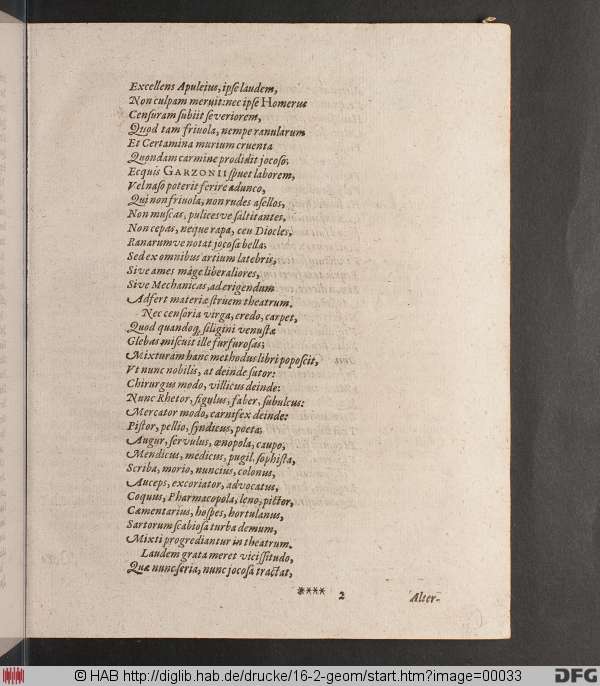 Excellens Apuleius, ipſe laudem,
Non culpam meruit: nec ipſe Homerus
Cenſuram ſubiit ſeveriorem,
Quod tam frivola, nempe ranularum
Et Certamina murium cruenta
Quondam carmine prodidit jocoſo;
Ecquis GARZONII ſpuet laborem,
Vel naſo poterit ferire adunco,
Qui non frivola, non rudes aſellos,
Non muſcas, pulicesve ſaltitantes,
Non cepas, neque rapa, ceu Diocles,
Ranarumve notat jocoſa bella;
Sed ex omnibus artium latebris,
Sive ames mage liberaliores,
Sive Mechanicas, ad erigendum
Adfert materiæ ſtruem theatrum.
Nec cenſoria virga, credo, carpet,
Quod quandoq; ſiligini venuſtæ
Glebas miſcuit ille furfuroſas;
Mixturam hanc methodus libri popoſcit,
Vt nunc nobilis, at deinde ſutor:
Chirurgus modo, villicus deinde:
Nunc Rhetor, figulus, faber, ſubulcus:
Mercator modo, carnifex deinde:
Piſtor, pellio, ſyndicus, poeta;
Augur, ſervulus, œnopola, caupo,
Mendicus, medicus, pugil, ſophiſta,
Scriba, morio, nuncius, colonus,
Auceps, excoriator, advocatus,
Coquus, Pharmacopola, leno, pictor,
Cæmentarius, hoſpes, hortulanus,
Sartorum ſcabioſa turba demum,
Mixti progrediantur in theatrum.
Laudem grata meret viciſſitudo,
Quæ nunc ſeria, nunc jocoſa tractat,
**** 2 Alter-
© HAB http://diglib.hab.de/drucke/16-2-geom/start.htm?image=00033
DFG